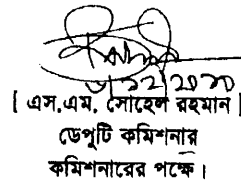 [ এস.এম. সোহেল রহমান ]
ডেপুটি কমিশনার
কমিশনারের পক্ষে।